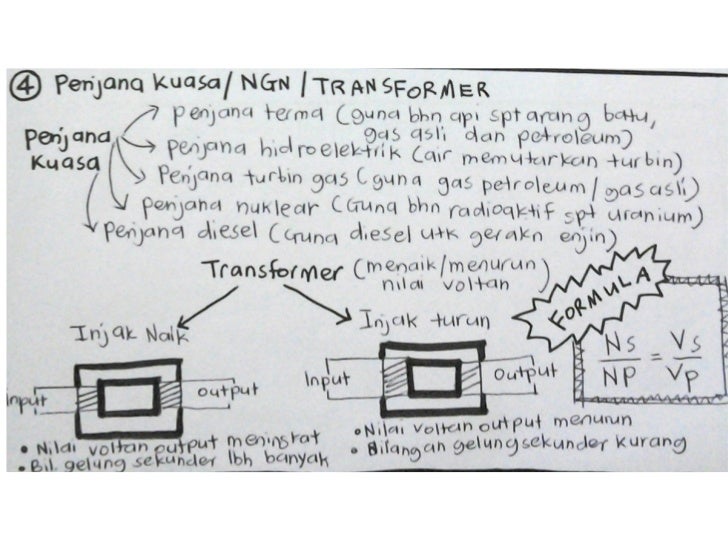 ④ Penjana Kuasa / NGN / TRANSFORMER
Penjana Kuasa
penjana terma (guna bhn api spt arang batu,
gas asli dan petroleum)
penjana hidroelektrik (air memutarkan turbin)
Penjana turbin gas (guna gas petroleum / gas asli)
penjana nuklear (Guna bhn radioaktif spt uranium)
Penjana diesel (Guna diesel utk gerakn enjin)
Transformer (menaik/menurun
nilai voltan)
FORMULA
Ns / NP = Vs / Vp
Injak Naik
input
output
• Nilai voltan output meningkat
• Bil. gelung sekunder lbh banyak
Injak turun
Input
Output
• Nilai voltan output menurun
• Bilangan gelung sekunder kurang